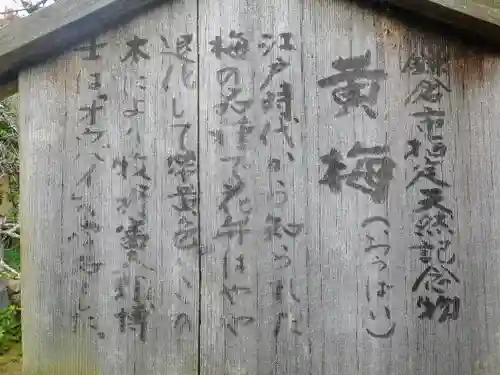 鎌倉市指定天然記念物
黄梅(おうばい)
江戸時代から知られた
梅の名種で花弁はやや
退化して淡黄色、この
木により牧野富太郎博
士は"オウバイ"と命名した。